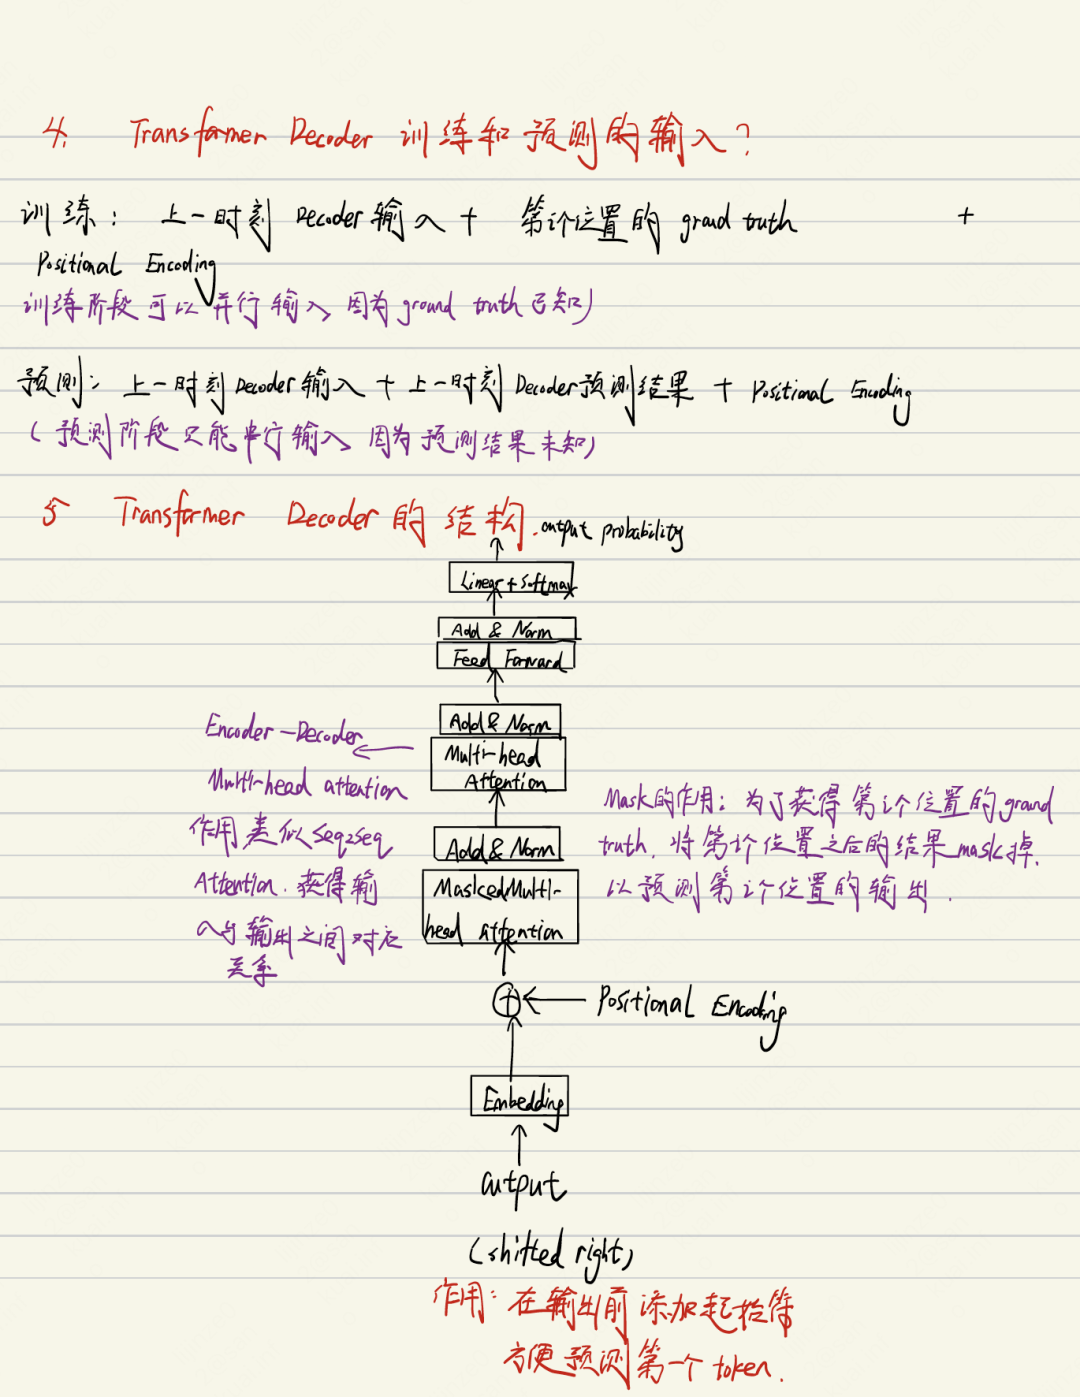 4. Transformer Decoder 训练和预测的输入?
训练: 上一时刻 Decoder 输入 + 第i个位置的 groud truth +
Positional Encoding
训练阶段可以并行输入, 因为 ground truth 已知)
预测: 上一时刻 Decoder 输入 + 上一时刻 Decoder 预测结果 + Positional Encoding
(预测阶段只能串行输入, 因为预测结果未知)
5 Transformer Decoder 的结构.
output probability
Linear + Softmax
Add & Norm
Feed Forward
Add & Norm
Multi-head
Attention
Encoder-Decoder
Multi-head attention
作用类似 seq2seq
Attention. 获得输
入与输出之间对应
关系
Mask的作用: 为了获得第i个位置的 groud
truth, 将第i个位置之后的结果 mask 掉,
以预测第i个位置的输出.
Add & Norm
Masked Multi-
head attention
+ Positional Encoding
Embedding
output
(shifted right)
作用: 在输出前添加起始符
方便预测第一个 token.